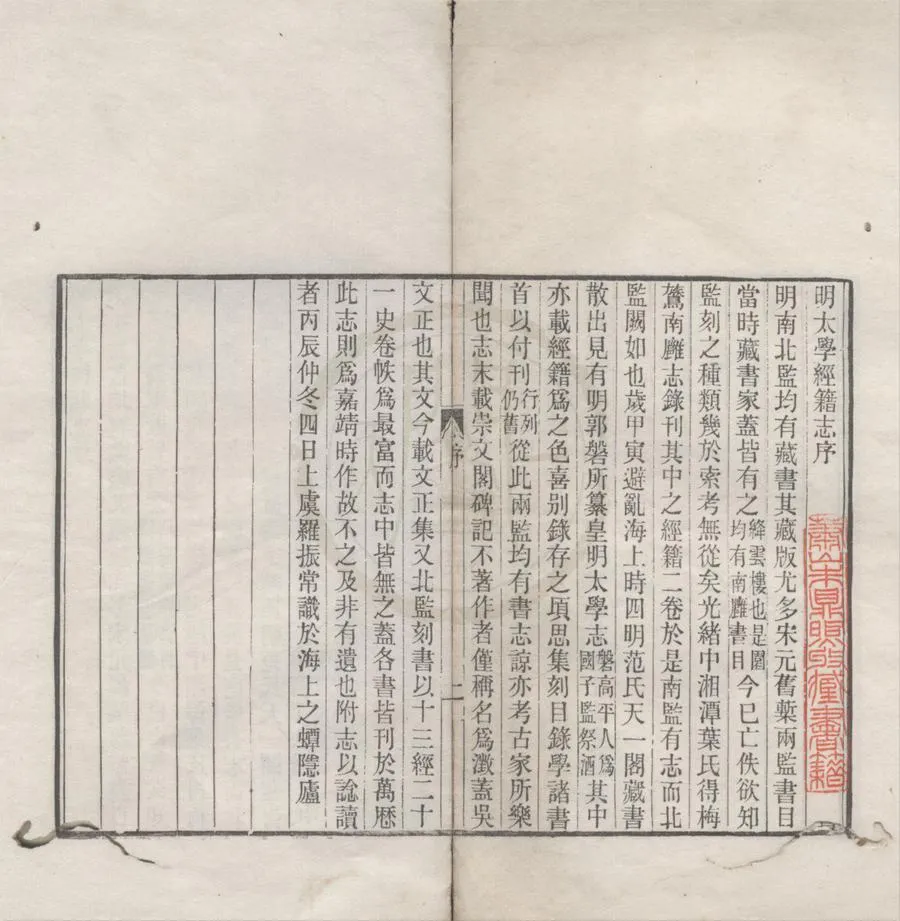 明太學經籍志序
明南北監均有藏書其藏版尤多宋元舊槧兩監書目
當時藏書家蓋皆有之絳雲樓也是園均有南廱書目今已亡佚欲知
監刻之種類幾於索考無從矣光緒中湘潭葉氏得梅
鷟南廱志錄刊其中之經籍二卷於是南監有志而北
監闕如也歲甲寅避亂海上時四明范氏天一閣藏書
散出見有明郭磐所纂皇明太學志磐高平人爲國子監祭酒其中
亦載經籍爲之色喜别錄存之項思集刻目錄學諸書
首以付刊行列仍舊從此兩監均有書志諒亦考古家所樂
聞也志末載崇文閣碑記不著作者僅稱名爲澂蓋吳
序 二
文正也其文今載文正集又北監刻書以十三經二十
一史卷帙爲最富而志中皆無之蓋各書皆刊於萬厯
此志則爲嘉靖時作故不之及非有遺也附志以諗讀
者丙辰仲冬四日上虞羅振常識於海上之蟫隱廬
蕭山朱鼎煦收藏書籍